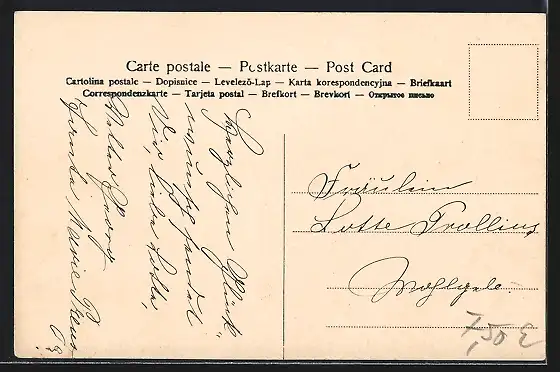 Carte postale — Postkarte — Post Card
Cartolina postale — Dopisnice — Levelező-Lap — Karta korespondencyjna — Briefkaart
Correspondenzkarte — Tarjeta postal — Brefkort — Brevkort — Открытое письмо
Herzlichen Glück
wunsch sendet
Dir, liebe Lotte,
Marie
Fräulein
Lotte Trollius
Wohlgeb.
7,50 €